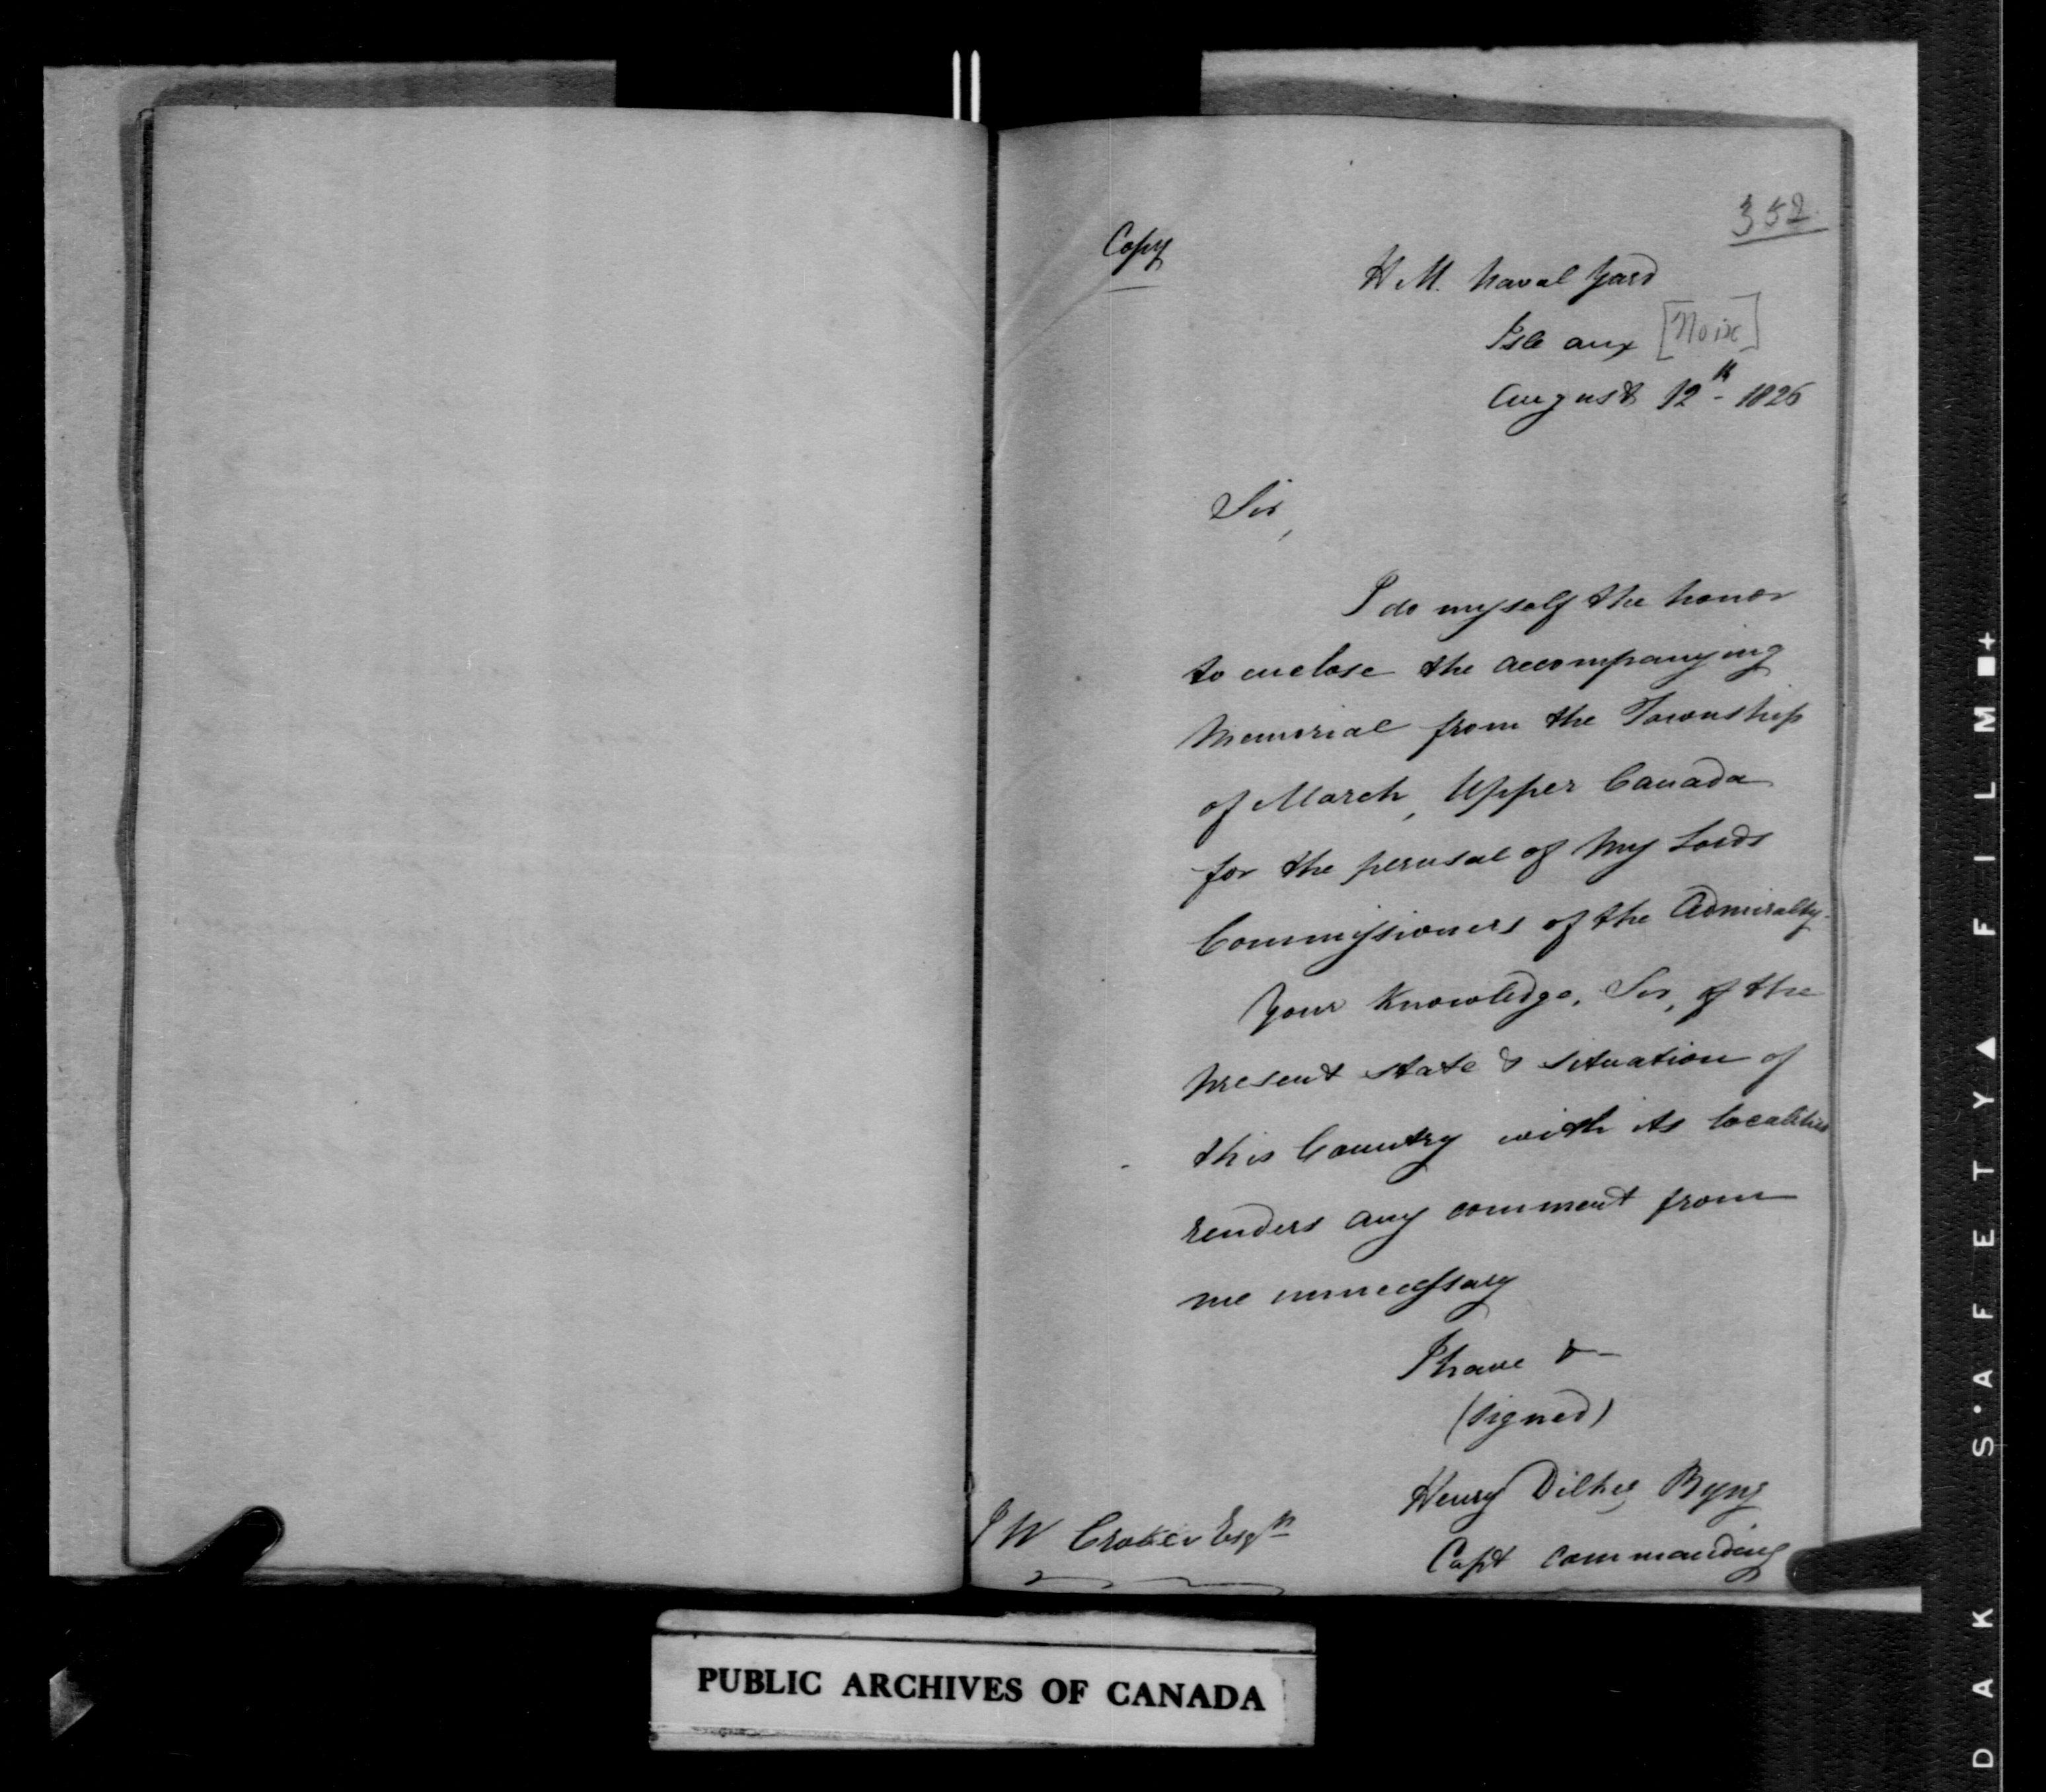 352.
Copy
H. M. Naval Yard
Isle aux [Noix]
August 12th - 1826
Sir,
I do myself the honor
to enclose the accompanying
Memorial from the Township
of March, Upper Canada
for the perusal of My Lords
Commissioners of the Admiralty.
Your Knowledge, Sir, of the
present state & situation of
this Country with its localities
renders any comment from
me unnecessary
I have &-
(signed)
Henry Dilkes Byng
J W Croker Esqre
Capt commanding
PUBLIC ARCHIVES OF CANADA
DAK S·AFETY▲FILM■+